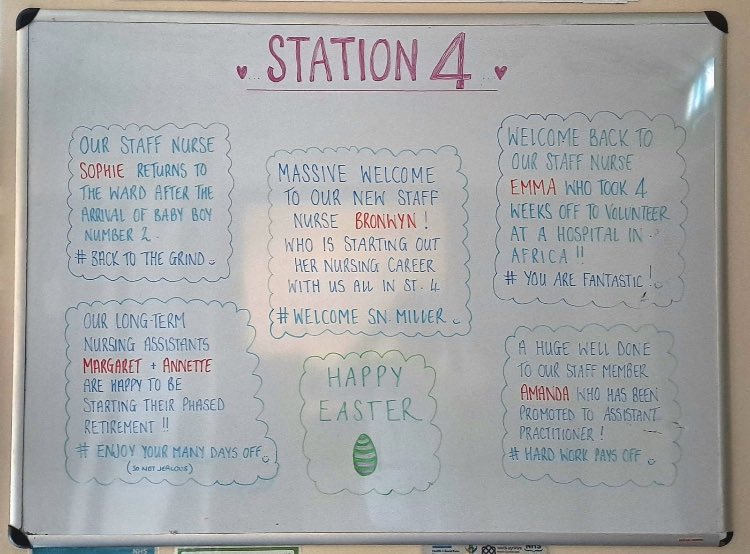 STATION 4
OUR STAFF NURSE
SOPHIE RETURNS TO
THE WARD AFTER THE
ARRIVAL OF BABY BOY
NUMBER 2.
# BACK TO THE GRIND
MASSIVE WELCOME
TO OUR NEW STAFF
NURSE BRONWYN!
WHO IS STARTING OUT
HER NURSING CAREER
WITH US ALL IN ST. 4
#WELCOME SN. MILLER
WELCOME BACK TO
OUR STAFF NURSE
EMMA WHO TOOK 4
WEEKS OFF TO VOLUNTEER
AT A HOSPITAL IN
AFRICA !!
# YOU ARE FANTASTIC!
OUR LONG-TERM
NURSING ASSISTANTS
MARGARET + ANNETTE
ARE HAPPY TO BE
STARTING THEIR PHASED
RETIREMENT !!
# ENJOY YOUR MANY DAYS OFF
(SO NOT JEALOUS)
HAPPY
EASTER
A HUGE WELL DONE
TO OUR STAFF MEMBER
AMANDA WHO HAS BEEN
PROMOTED TO ASSISTANT
PRACTITIONER!
# HARD WORK PAYS OFF
NHS
NHS